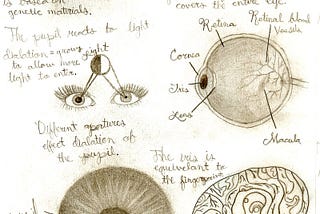 is based on
genetic materials.
covers the entire eye.
The pupil reacts to light
Dialation = grows
to allow more
light to enter.
light
Retina
Retinal Blood
Vessels
Cornea
Iris
Lens
Macula
Different apertures
effect dialation of
the pupil.
The iris is
equivelant to
the fingerprint